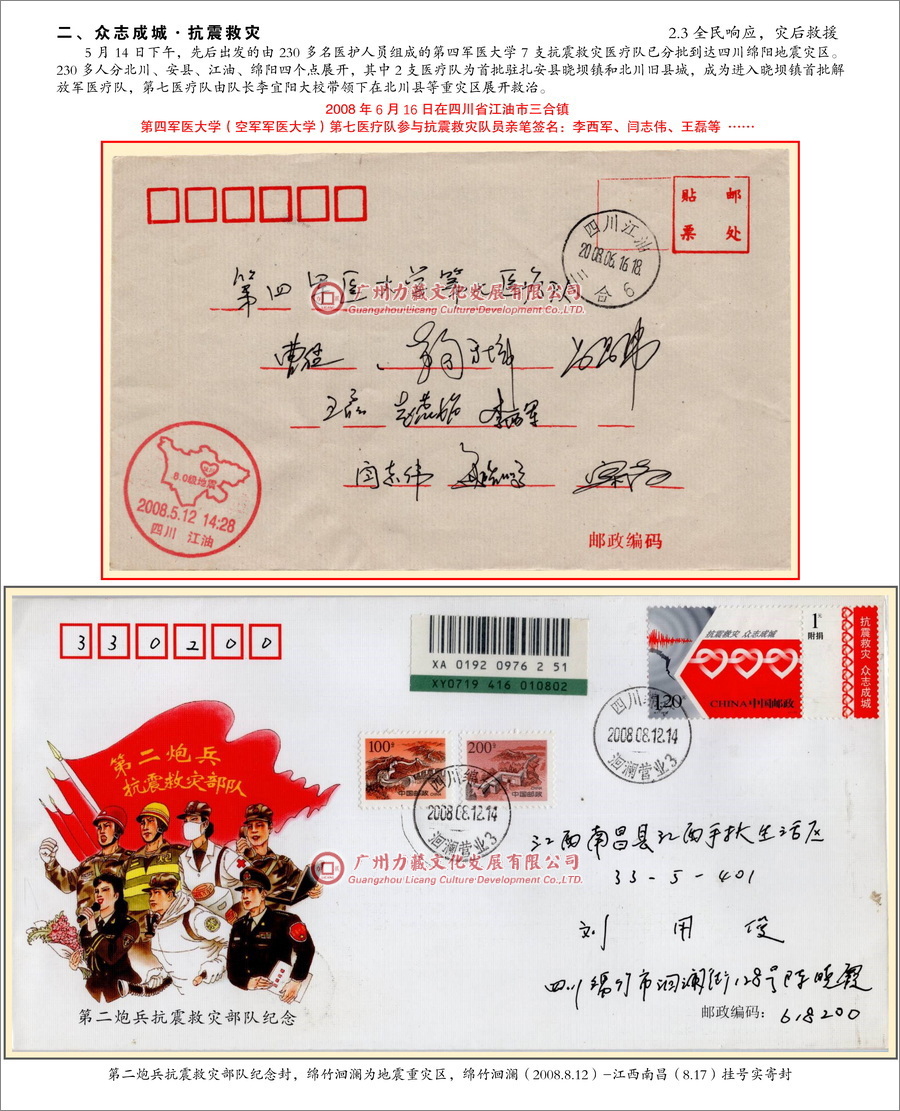 二、众志成城·抗震救灾
2.3 全民响应，灾后救援
5 月 14 日下午，先后出发的由 230 多名医护人员组成的第四军医大学 7 支抗震救灾医疗队已分批到达四川绵阳地震灾区。
230 多人分北川、安县、江油、绵阳四个点展开，其中 2 支医疗队为首批驻扎安县晓坝镇和北川旧县城，成为进入晓坝镇首批解
放军医疗队，第七医疗队由队长李宜阳大校带领下在北川县等重灾区展开救治。
2008 年 6 月 16 日在四川省江油市三合镇
第四军医大学（空军军医大学）第七医疗队参与抗震救灾队员亲笔签名：李西军、闫志伟、王磊等 ……
贴 邮
票 处
四川江油
2008.06.16.18.
三合 6
第四军医大学第七医疗队
广州力藏文化发展有限公司
Guangzhou Licang Culture Development Co.,LTD.
曹佳
王磊
李西军
闫志伟
8.0级地震
2008.5.12 14:28
四川 江油
邮政编码
330200
XA 0192 0976 2 51
XY0719 416 010802
抗震救灾 众志成城
1元
附捐
1.20
CHINA 中国邮政
抗震救灾 众志成城
四川绵竹
2008.08.12.14
洄澜营业3
100分
中国邮政
200分
中国邮政
四川绵竹
2008.08.12.14
洄澜营业3
第二炮兵
抗震救灾部队
江西南昌县江西手扶生活区
33-5-401
广州力藏文化发展有限公司
Guangzhou Licang Culture Development Co.,LTD.
刘用俊
四川绵竹市洄澜街128号陈晓霞
邮政编码：618200
第二炮兵抗震救灾部队纪念
第二炮兵抗震救灾部队纪念封，绵竹洄澜为地震重灾区，绵竹洄澜（2008.8.12）-江西南昌（8.17）挂号实寄封